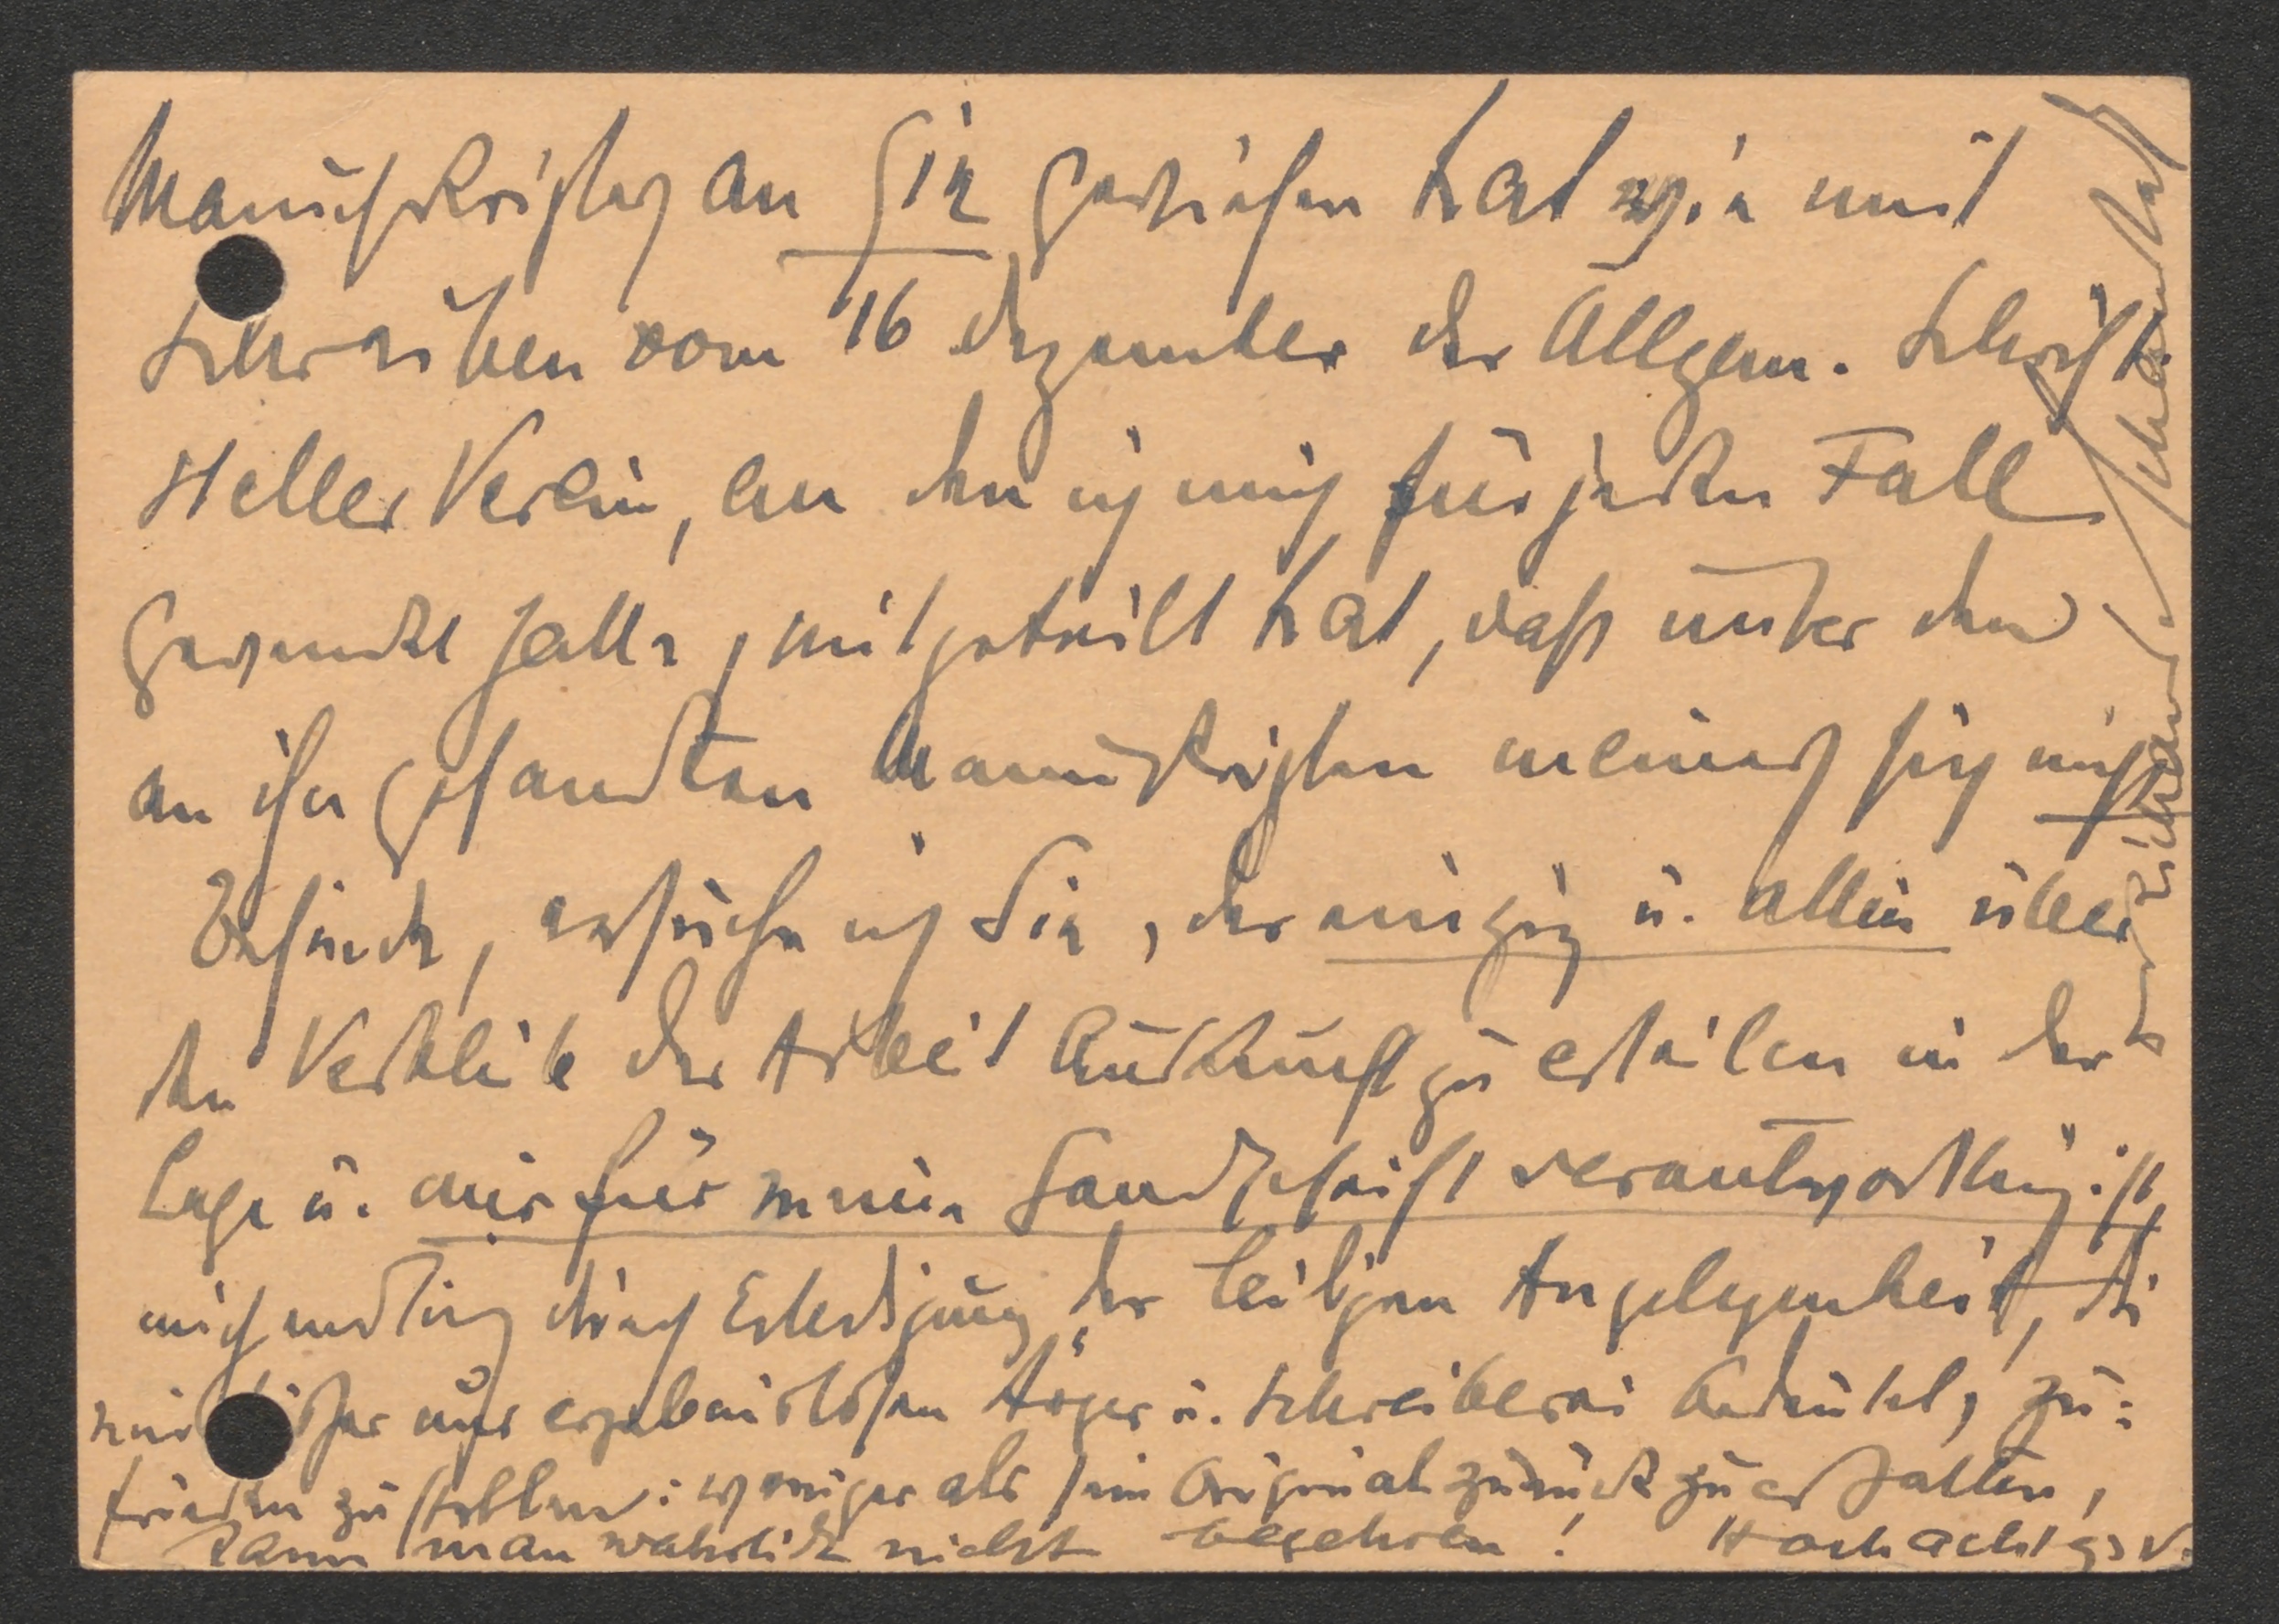 Manuskriptes an Sie gewiesen hat wie mit
Schreiben vom 16 Dezember der Allgem. Schrift-
steller Verein, an den ich mich für jeden Fall
gewendet hatte, mitgeteilt hat, dass unter den
an ihn gesandten Manuskripten meines sich nicht
befinde, ersuche ich Sie, der einzig u. allein über
den Verbleib der Arbeit Auskunft zu erteilen in der
Lage u. mir für meine Handschrift verantwortlich ist,
mich endlich durch Erledigung der leidigen Angelegenheit, die
mir bisher nur ergebnislosen Ärger u. Schreiberei bedeutet, zu=
frieden zu stellen: weniger als sein Original zurück zu erhalten,
kann man wahrlich nicht begehren! Hochachtgsv.
Richard Schaukal